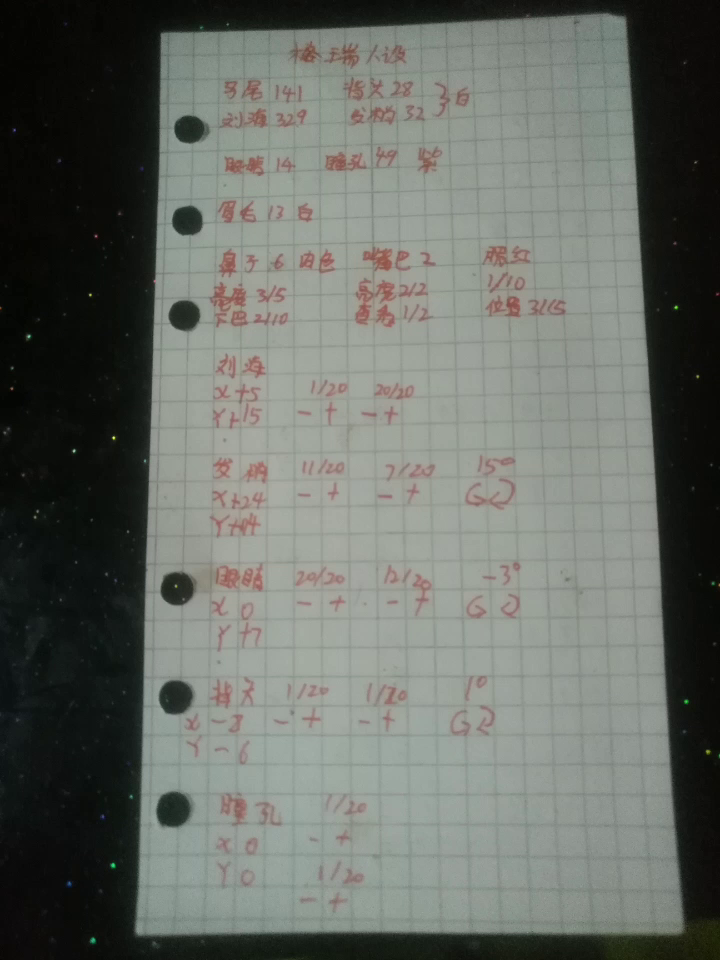 榕瑞人设
马尾 141 揹头 28 }白
刘海 329 发梢 32
眼睛 14 瞳孔 49 紫
眉毛 13 白
鼻子 6 肉色 嘴巴 2 腮红
亮度 3/5 高度 2/2 1/10
下巴 2/10 1/2 位置 3/15
刘海
X+5 1/20 20/20
Y+15 - + - +
发梢 11/20 7/20 15°
X+24 - + - +
Y+14
眼睛 20/20 12/20 -3°
X 0 - + - +
Y +7
揹头 1/20 1/20 1°
X -8 - + - +
Y -6
瞳孔 1/20
X 0 - +
Y 0 1/20
- +